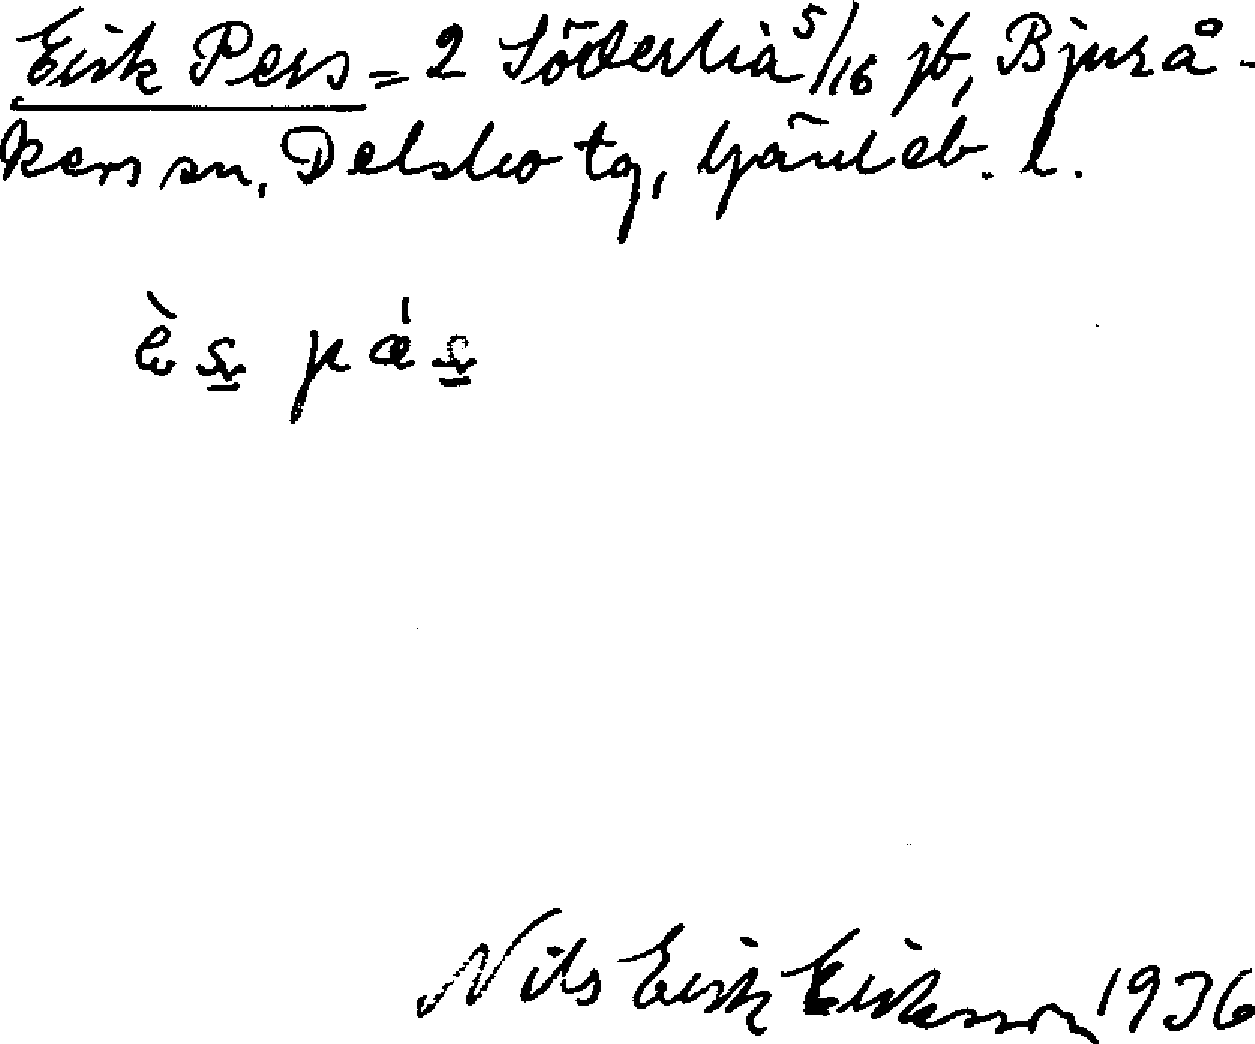 Erik Pers = 2 Söderhia 5/16 jb, Bjurå-
kers sn, Delsbo tg, Gävleb. l.
Nils Erik Eriksson 1936